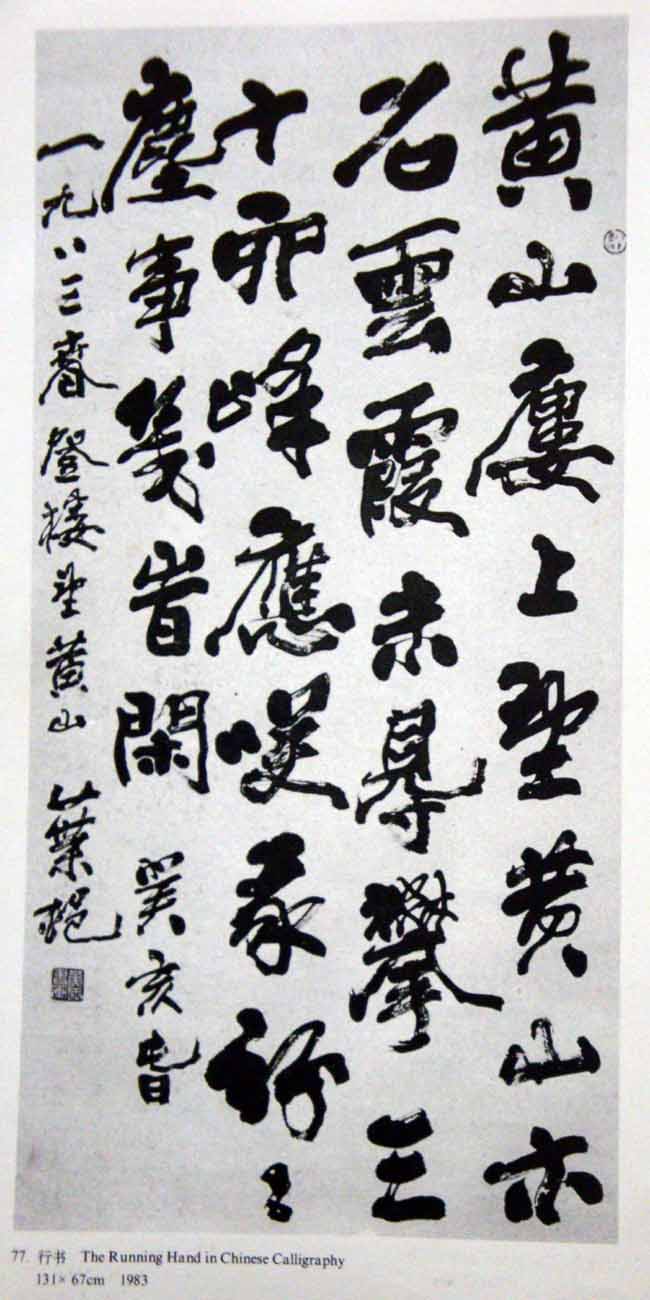 黄山廔上望黄山亦
名雲霞未尋攀三
十峰應咲我紛〻
塵事幾旹閑 癸亥旾
一九八三春登楼望黄山 葉
77. 行书 The Running Hand in Chinese Calligraphy
131× 67cm 1983